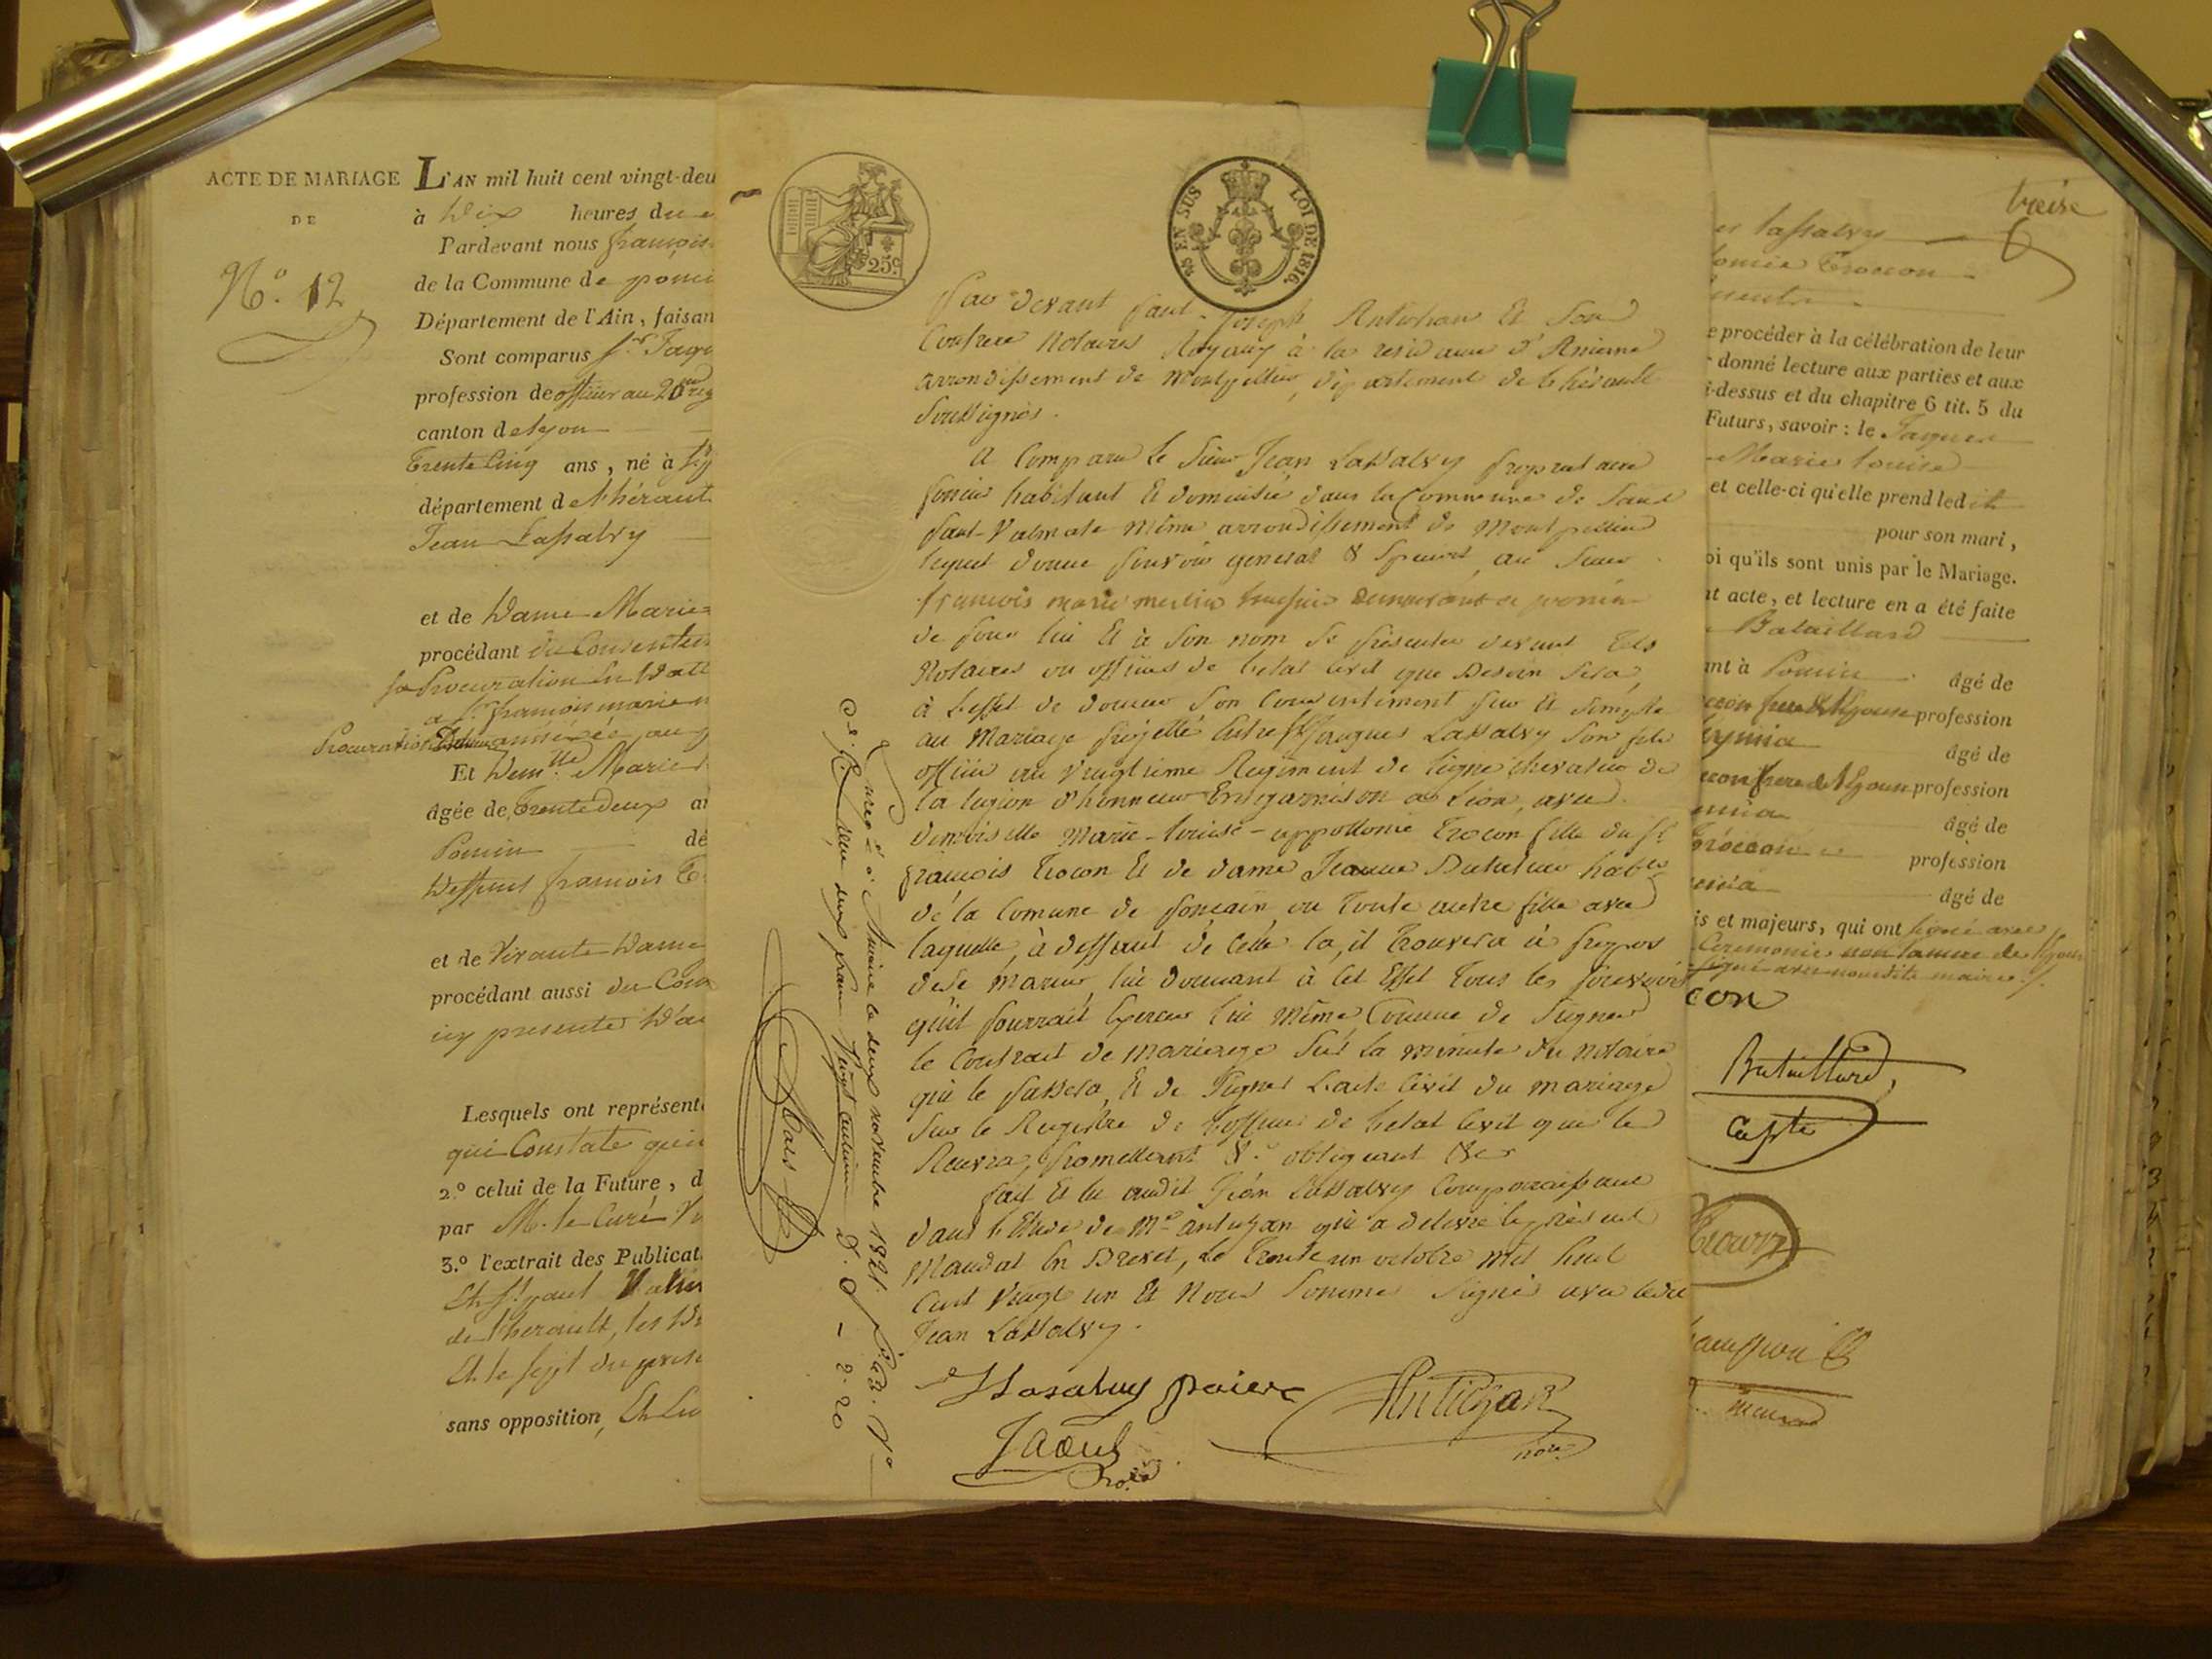 ACTE DE MARIAGE
DE
N.o 12
L'AN mil huit cent vingt-deu
à Dix heures du
Pardevant nous françois
de la Commune de
Département de l'Ain, faisan
Sont comparus Sr Jaqu
profession de officier au 20me reg
canton de Lyon
Trente Cinq ans, né à
département de l'hérault
Jean Lassalvy
et de Dame Marie
procédant du Consentem
sa Procuration En Date
a Sr françois marie
Procuration annéxée au
Et Demlle Marie
âgée de Trente Deux a
Poncin dé
Deffunt françois T
et de Vivante Dame
procédant aussi du Con
icy presente D'a
Lesquels ont représent
qui Constate qu'i
2.° celui de la Future, d
par M. le Curé
3.° l'extrait des Publicat
Et St paul Valm
de l'herault, les
Et le sept du prese
sans opposition, Et
25c
EN SUS LOI DE 1816.
Par devant Paul-Joseph Antichan Et Son
Confrere Notaires Royaux à la residance d'Aniane
arrondissement de Montpellier, département de l'hérault
Soussignés.
A Comparu le Sieur Jean Lassalvy propriétaire
foncier habitant Et domicilié dans la Commune de Saint
Paul-Valmale même arrondissement de Montpellier
lequel donne pouvoir general & Special au Sieur
françois marie merlin demeurant a poncin
de pour lui Et à Son nom Se présenter devant tels
Notaires ou officiers de l'etat civil que Besoin Sera,
à l'effet de donner Son Consentement pur Et Simple
au Mariage projetté Entre Sr Jaques Lassalvy Son fils
officier au vingtieme Regiment de ligne chevalier de
la legion d'honneur En garnison a Lion, avec
demoiselle Marie-louise-appollonie Trocon fille du Sr
françois Trocon Et de dame Jeanne habts
de la Comune de Poncain ou toute autre fille avec
laquelle, à deffaut de Celle la, il trouvera à propos
de Se marier, lui donnant à Cet Effet tous les pouvoirs
qu'il pourrait Exercer lui même Comme de Signer
le Contrait de mariage Sur la minute du notaire
qui le passera, Et de Signer L'acte Civil du mariage
Sur le Registre de l'officier de l'etat Civil qui le
Recevra, promettant &c obligeant &c
fait Et lu audit Jean Lassalvy Comparaissant
dans l'Etude de Me antichan qui a délivré le présent
Mandat En Brevet, Le trente un octobre mil huit
Cent vingt un Et Nous Somme Signés avec ledit
Jean Lassalvy.
Antichan
nore
Enregré à Aniane le deux novembre 1821.
reçu deux francs vingt centimes
2.20
treize
es lassalvy
lonie Trocon
e procéder à la célébration de leur
donné lecture aux parties et aux
i-dessus et du chapitre 6 tit. 5 du
Futurs, savoir : le Jaques
Marie louise
et celle-ci qu'elle prend ledit
pour son mari,
oi qu'ils sont unis par le Mariage.
nt acte, et lecture en a été faite
Bataillard
ant à Poncin âgé de
profession
âgé de
profession
âgé de
profession
âgé de
is et majeurs, qui ont signé avec
con
Bataillard